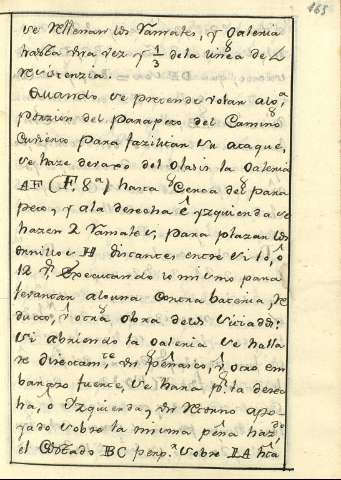 165
se rellenan los Ramales, y Galeria
hasta una vez y 1/3 de la linea de
Resistencia.
Quando se pretende volar alg.ª
porcion del parapeto del Camino
Cubierto para facilitar un ataque,
se haze debaxo del Glasis la Galeria
AF (F. 8ª) hasta cerca del para
peto, y a la derecha è yzquierda se
hazen 2 Ramales, para plazar los
ornillos H distantes entre si 10, ò
12 Executando lo mismo para
levantar alguna Contra bateria, Re
ducto, ù otra obra de los sitiad.s:
Si abriendo la Galeria se halla
re directam.te un peñasco, ù otro em
barazo fuerte, se hará p.r la derec
ha, ò Yzquierda, un Retorno apo
yado sobre la misma peña haz.do
el Costado BC perp.r sobre IA h.ta